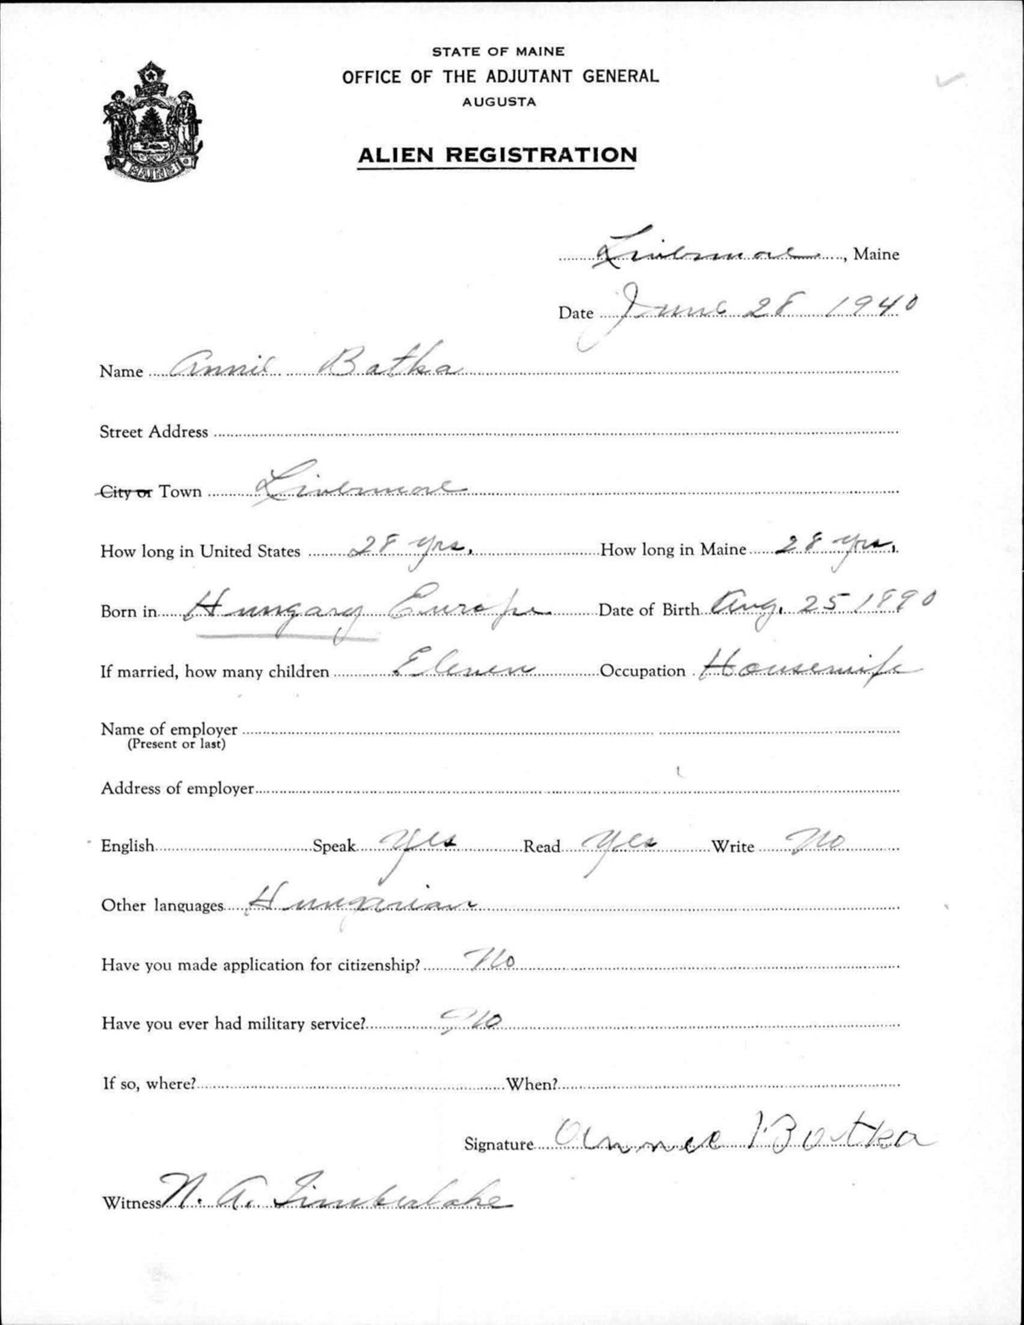 STATE OF MAINE
OFFICE OF THE ADJUTANT GENERAL
AUGUSTA
ALIEN REGISTRATION
MAINE
Livermore, Maine
Date June 28 1940
Name Annie Batka
Street Address
City or Town Livermore
How long in United States 28 yrs. How long in Maine 28 yrs.
Born in Hungary Europe Date of Birth Aug. 25 1890
If married, how many children Eleven Occupation Housewife
Name of employer
(Present or last)
Address of employer
English Speak Yes Read Yes Write No
Other languages Hungarian
Have you made application for citizenship? No
Have you ever had military service? No
If so, where? When?
Signature Annie Botka
Witness N. A. Timberlake